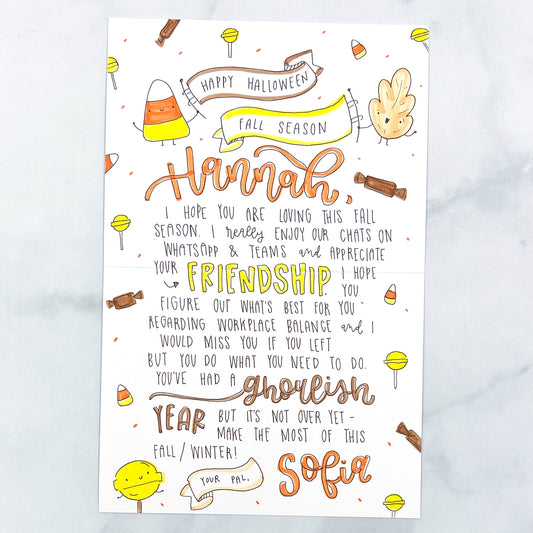 HAPPY HALLOWEEN
FALL SEASON
Hannah,
I HOPE YOU ARE LOVING THIS FALL
SEASON. I really ENJOY OUR CHATS ON
WHATSAPP & TEAMS and APPRECIATE
YOUR FRIENDSHIP. I HOPE
YOU
FIGURE OUT WHAT'S BEST FOR YOU
REGARDING WORKPLACE BALANCE and I
WOULD MISS YOU IF YOU LEFT
BUT YOU DO WHAT YOU NEED TO DO.
YOU'VE HAD A ghoulish
YEAR BUT IT'S NOT OVER YET -
MAKE THE MOST OF THIS
FALL/WINTER!
YOUR PAL,
Sofia